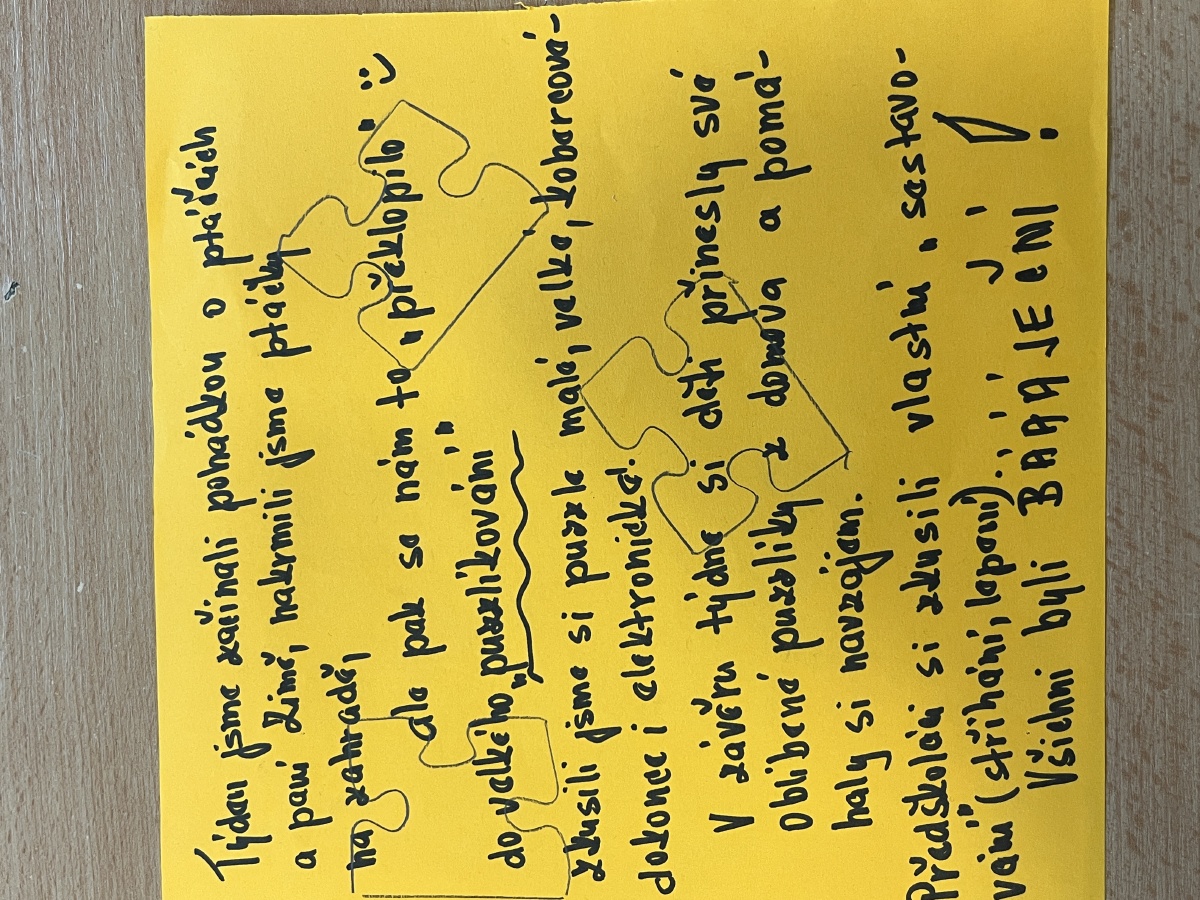 Týden jsme začínali pohádkou o ptáčcích
a paní Zimě, nakrmili jsme ptáčky
na zahradě,
ale pak se nám to „překlopilo" :)
do velkého „puzzlíkování"
zkusili jsme si puzzle malé, velké, kobercové -
dokonce i elektronické.
V závěru týdne si děti přinesly své
oblíbené puzzlíky z domova a pomá-
haly si navzájem.
Předškoláci si zkusili vlastní „sestavo-
vání" (stříhání, lepení)...
Všichni byli BÁÁÁJEČNÍ!